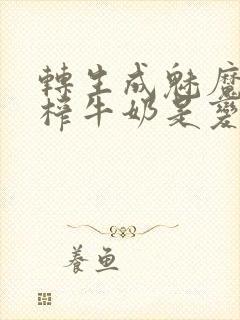 轉生成魅魔
榨牛奶是變
養魚